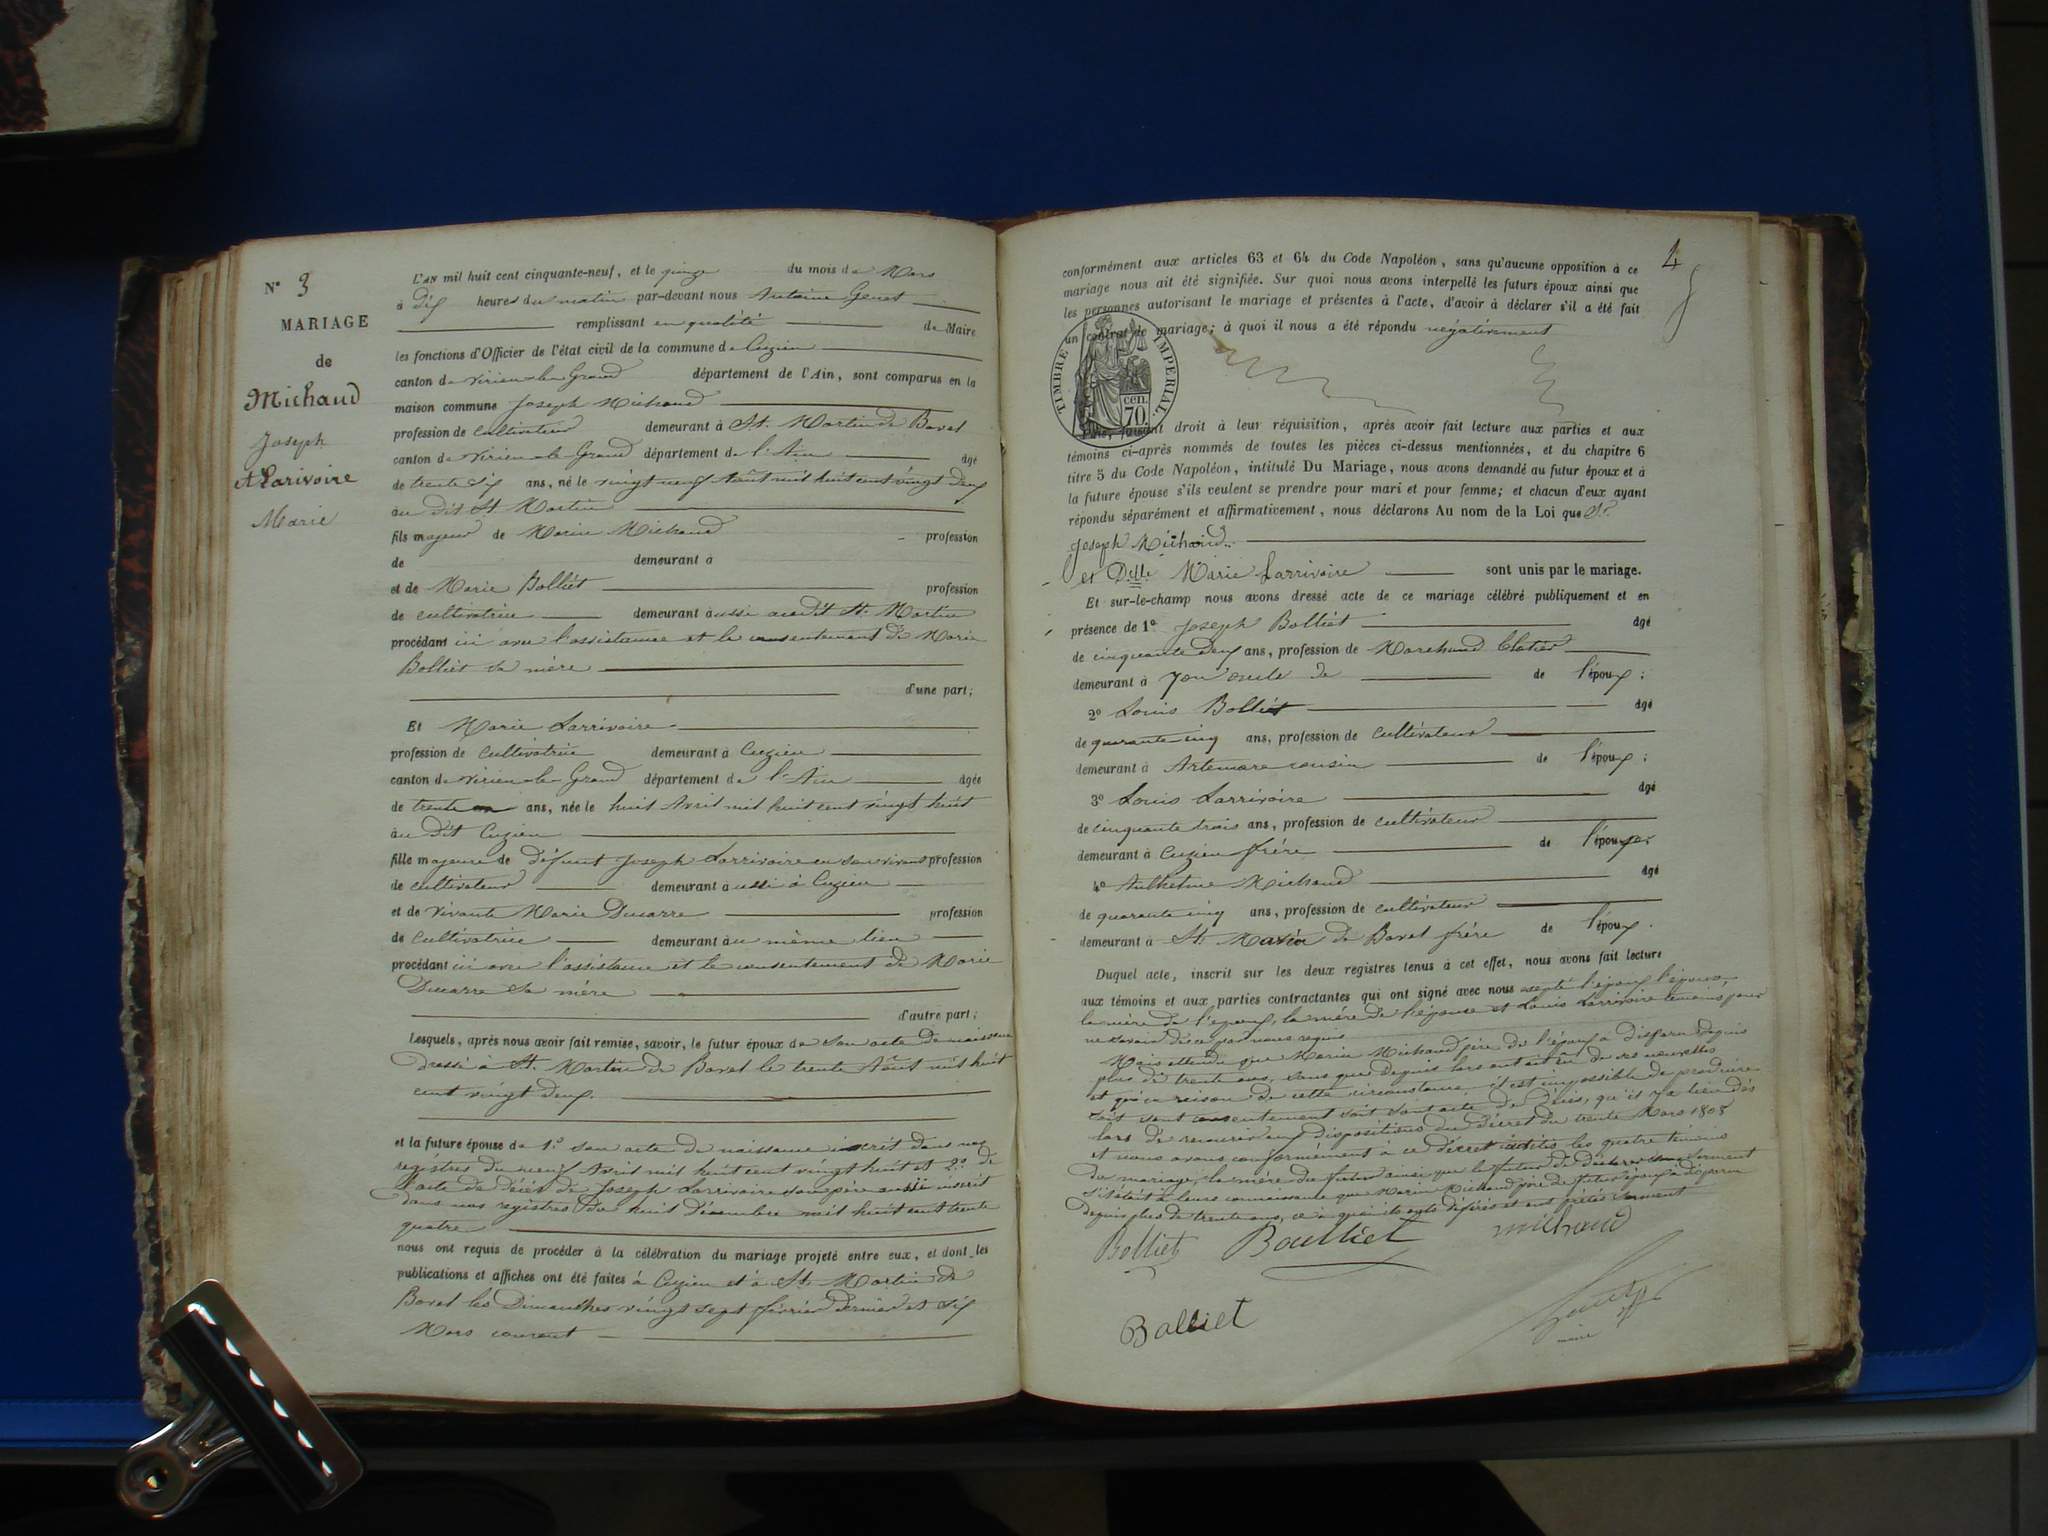 N° 3
MARIAGE
de
Michaud
Joseph
et Larivoire
Marie
L'AN mil huit cent cinquante-neuf, et le quinze du mois de Mars
à dix heures du matin par-devant nous Antoine Genet
remplissant en qualité de Maire
les fonctions d'Officier de l'état civil de la commune de Cuzieu
canton de Virieu-le-Grand département de l'Ain, sont comparus en la
maison commune Joseph Michaud
profession de cultivateur demeurant à St. Martin de Bavel
canton de Virieu-le-Grand département de l'Ain âgé
de trente six ans, né le vingt neuf Août mil huit cent vingt deux
au dit St Martin
fils majeur de Marin Michaud profession
de demeurant à
et de Marie Bolliet profession
de cultivatrice demeurant aussi audit St. Martin
procédant ici avec l'assistance et le consentement de Marie
Bolliet sa mère
d'une part;
Et Marie Larrivoire
profession de cultivatrice demeurant à Cuzieu
canton de Virieu-le-Grand département de l'Ain âgée
de trente ans, née le huit Avril mil huit cent vingt huit
au dit Cuzieu
fille majeure de défunt Joseph Larrivoire en son vivant profession
de cultivateur demeurant aussi à Cuzieu
et de vivante Marie Ducarre profession
de cultivatrice demeurant au même lieu
procédant ici avec l'assistance et le consentement de Marie
Ducarre sa mère
d'autre part;
Lesquels, après nous avoir fait remise, savoir, le futur époux de son acte de naissance
dressé à St. Martin de Bavel le trente Août mil huit
cent vingt deux.
et la future épouse de 1° son acte de naissance inscrit dans nos
registres du neuf Avril mil huit cent vingt huit et 2° de
l'acte de décès de Joseph Larrivoire son père aussi inscrit
dans nos registres du huit Décembre mil huit cent trente
quatre
nous ont requis de procéder à la célébration du mariage projeté entre eux, et dont les
publications et affiches ont été faites à Cuzieu et à St. Martin de
Bavel les Dimanches vingt sept février dernier et six
Mars courant
4
conformément aux articles 63 et 64 du Code Napoléon, sans qu'aucune opposition à ce
mariage nous ait été signifiée. Sur quoi nous avons interpellé les futurs époux ainsi que
les personnes autorisant le mariage et présentes à l'acte, d'avoir à déclarer s'il a été fait
un contrat de mariage; à quoi il nous a été répondu négativement
TIMBRE IMPERIAL
cen.
70.
faisant droit à leur réquisition, après avoir fait lecture aux parties et aux
témoins ci-après nommés de toutes les pièces ci-dessus mentionnées, et du chapitre 6
titre 5 du Code Napoléon, intitulé Du Mariage, nous avons demandé au futur époux et à
la future épouse s'ils veulent se prendre pour mari et pour femme; et chacun d'eux ayant
répondu séparément et affirmativement, nous déclarons Au nom de la Loi que Sr.
Joseph Michaud
et Delle Marie Larrivoire sont unis par le mariage.
Et sur-le-champ nous avons dressé acte de ce mariage célébré publiquement et en
présence de 1° Joseph Bolliet âgé
de cinquante deux ans, profession de Marchand
demeurant à oncle de de l'époux;
2° Louis Bolliet âgé
de quarante cinq ans, profession de cultivateur
demeurant à Artemare cousin de l'époux;
3° Louis Larrivoire âgé
de cinquante trois ans, profession de cultivateur
demeurant à Cuzieu frère de l'épouse
4° Anthelme Michaud âgé
de quarante cinq ans, profession de cultivateur
demeurant à St. Martin de Bavel frère de l'époux.
Duquel acte, inscrit sur les deux registres tenus à cet effet, nous avons fait lecture
aux témoins et aux parties contractantes qui ont signé avec nous excepté l'époux l'épouse,
la mère de l'époux, la mère de l'épouse et Louis Larrivoire témoins pour
ne savoir de ce par nous requis
Mais attendu que Marin Michaud père de l'époux a disparu depuis
plus de trente ans, sans que depuis lors on ait eu de ses nouvelles
et qu'en raison de cette circonstance il est impossible de produire
soit son consentement soit son acte de décès, qu'il y a lieu dès
lors de recourir aux dispositions du Décret du trente Mars 1808
et nous avons conformément à ce décret invité les quatre témoins
du mariage, la mère du futur ainsi que le futur de déclarer sous serment
s'il était à leurs connaissance que Marin Michaud père du futur époux a disparu
depuis plus de trente ans, ce à quoi ils ont déféré et ont prêté serment
Bolliet Boulliet michaud
Balliet
maire